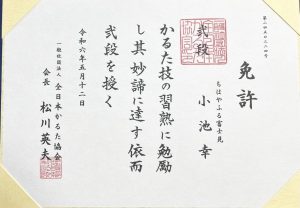 免許
弐段
ちはやふる富士見
小池幸
かるた技の習熟に勉励
し其妙諦に達す依而
弐段を授く
令和六年五月十二日
一般社団法人 全日本かるた協会
会長 松川英夫